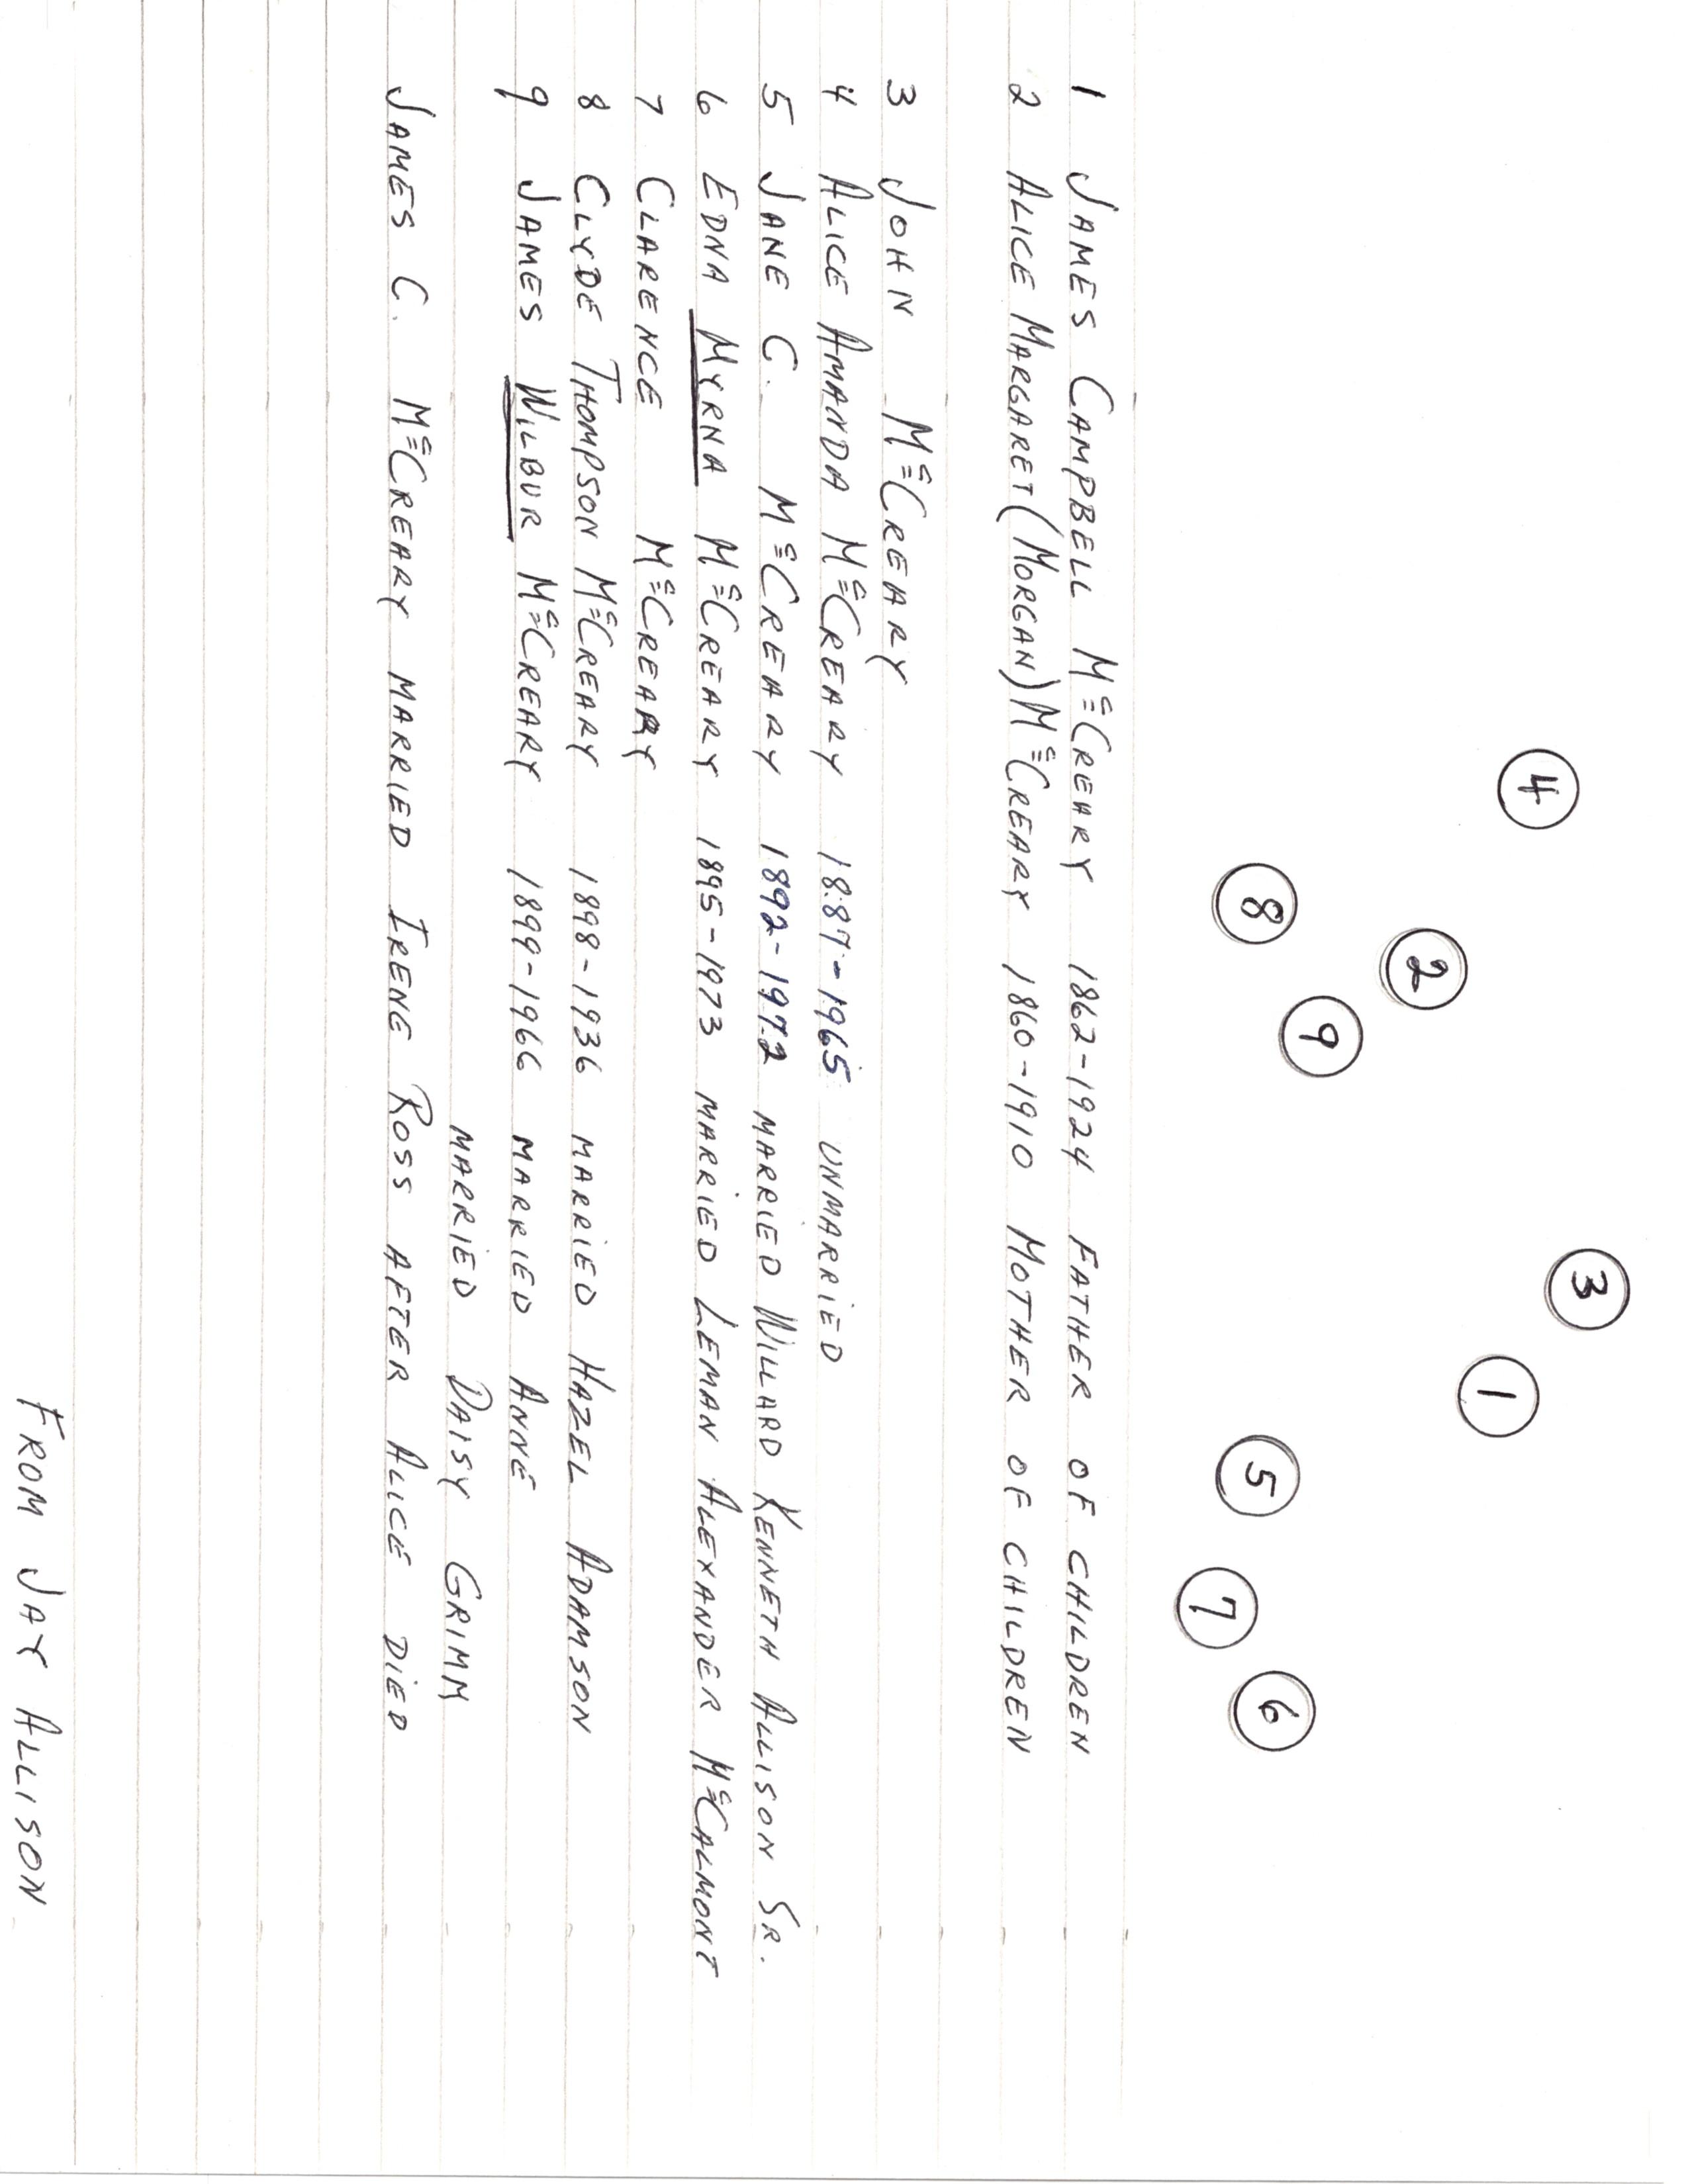 3
4
1
2
9
8
5
6
7
1 JAMES CAMPBELL McCREARY 1862-1924 FATHER OF CHILDREN
2 ALICE MARGARET (MORGAN) McCREARY 1860-1910 MOTHER OF CHILDREN
3 JOHN McCREARY
4 ALICE AMANDA McCREARY 1887-1965 UNMARRIED
5 JANE C. McCREARY 1892-1972 MARRIED WILLARD KENNETH ALLISON SR.
6 EDNA MYRNA McCREARY 1895-1973 MARRIED LEMAN ALEXANDER McCALMONT
7 CLARENCE McCREARY
8 CLYDE THOMPSON McCREARY 1898-1936 MARRIED HAZEL ADAMSON
9 JAMES WILBUR McCREARY 1899-1966 MARRIED ANNE
MARRIED DAISY GRIMM
JAMES C. McCREARY MARRIED IRENE ROSS AFTER ALICE DIED
FROM JAY ALLISON